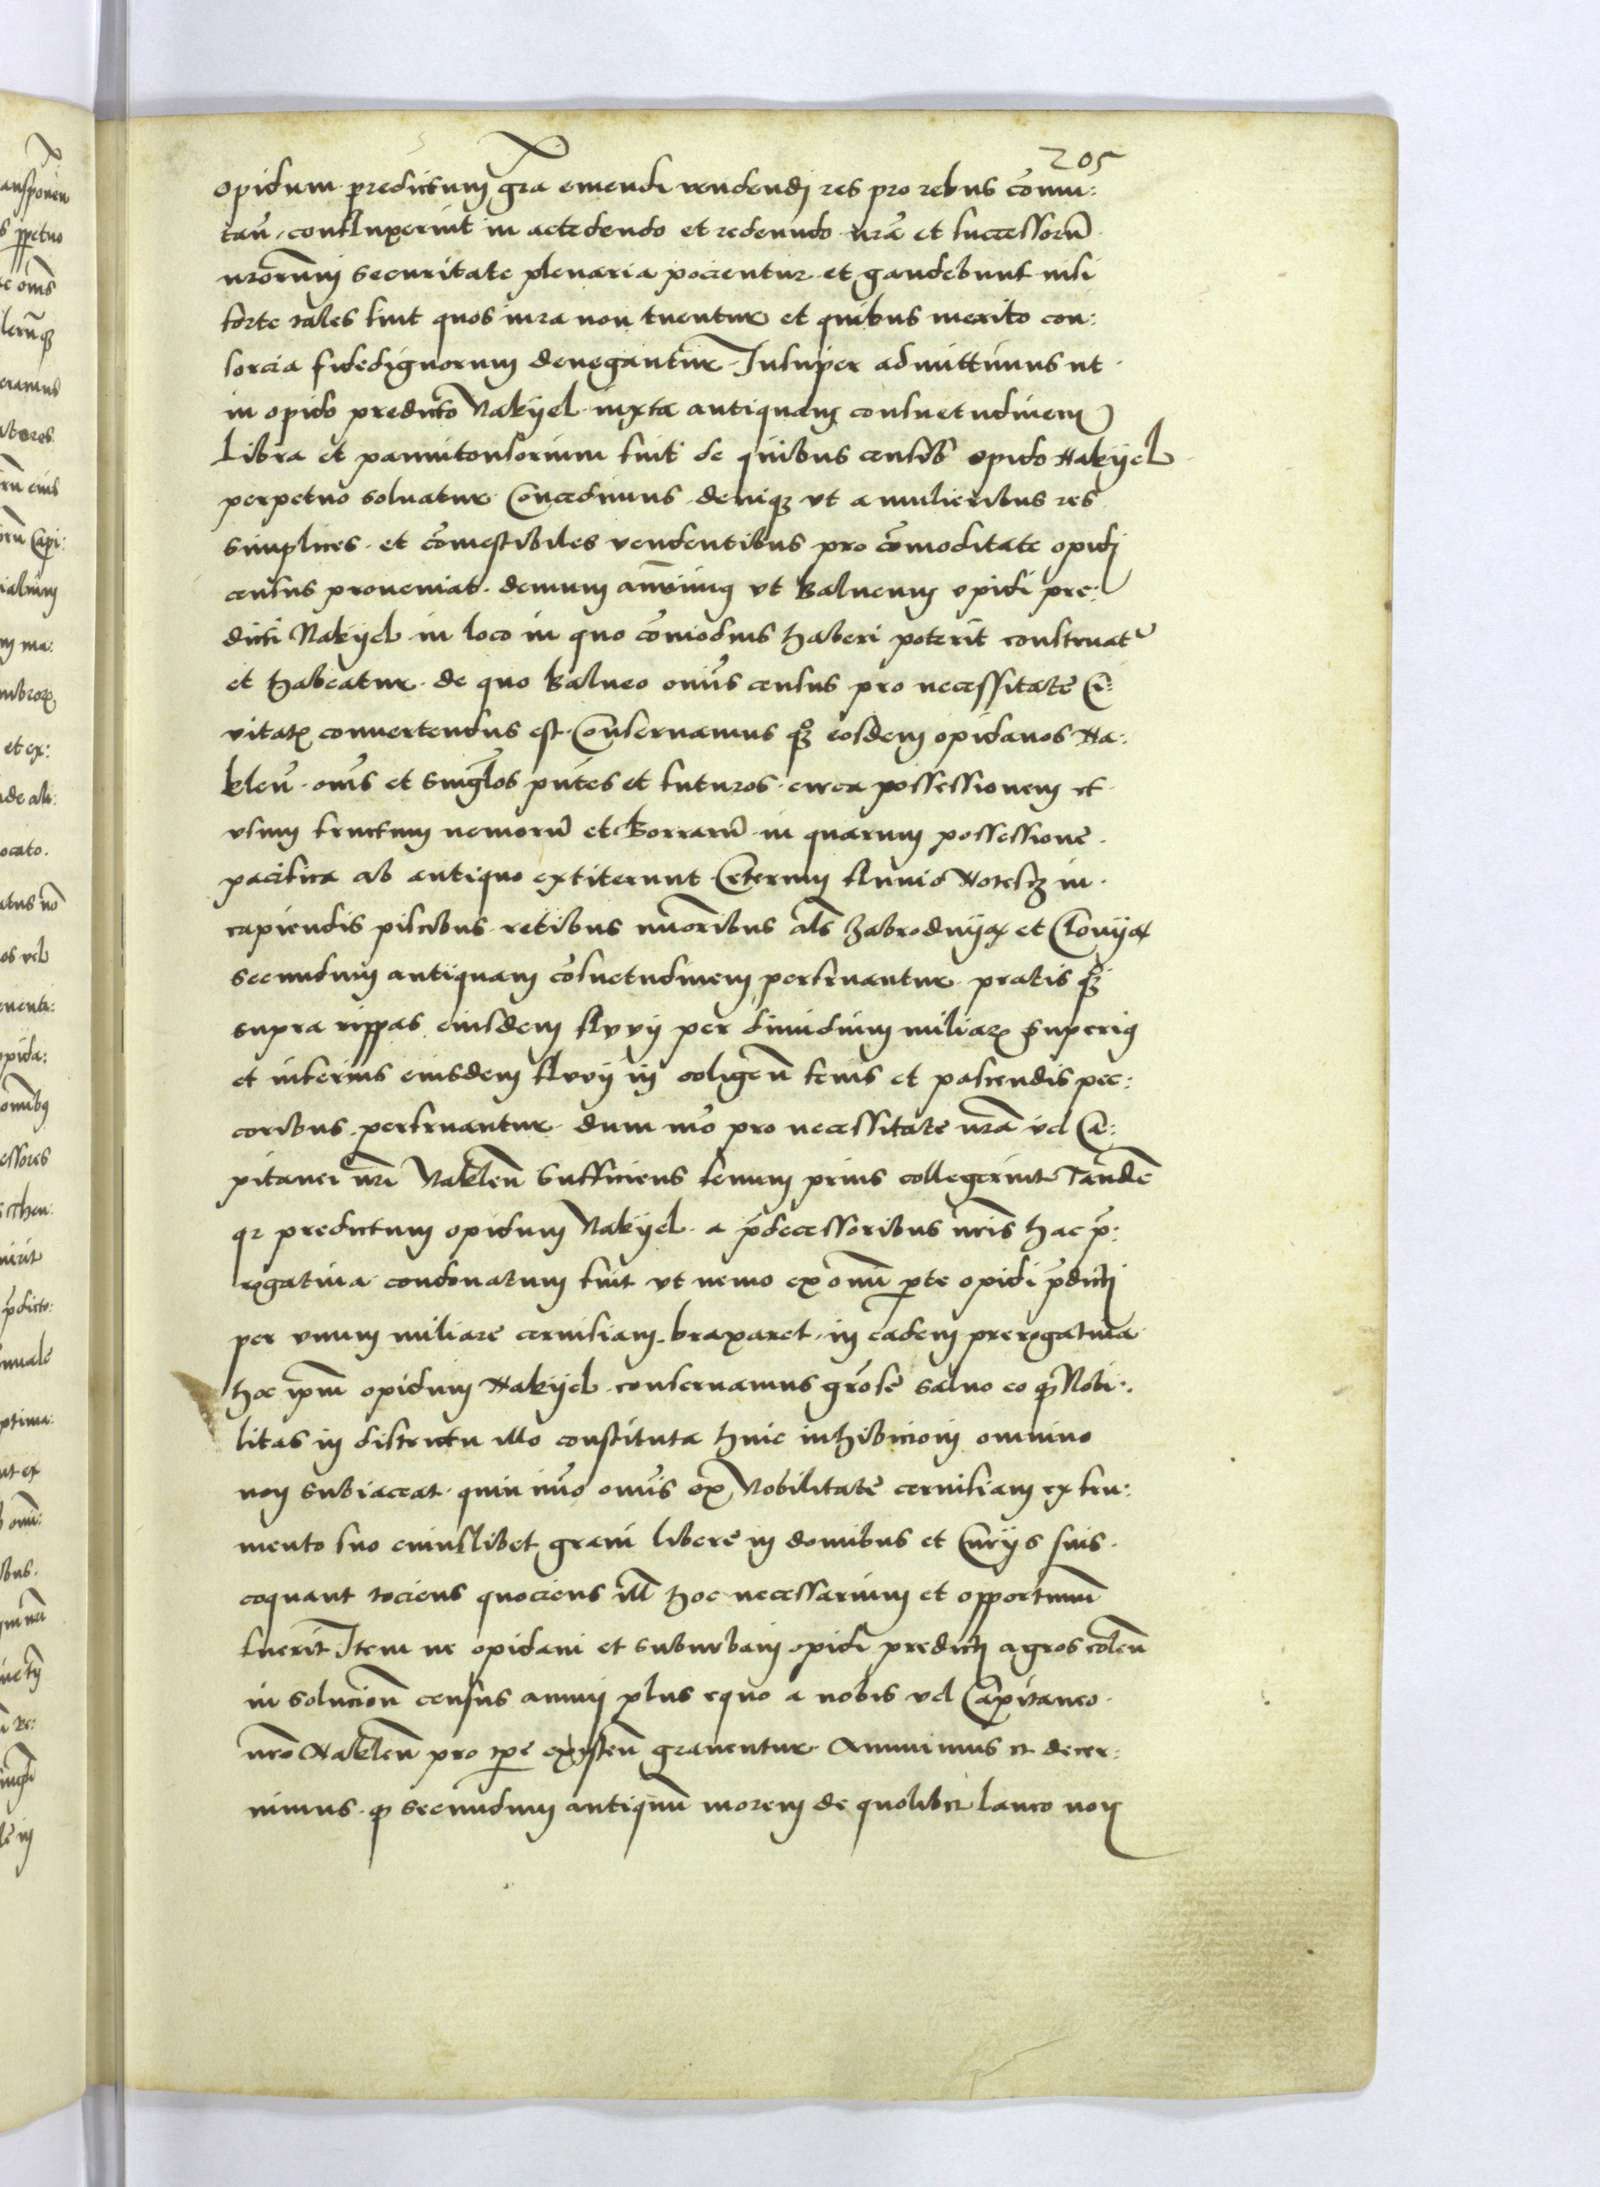 205
opidum predictum gra emendi vendendi res pro rebus comu:
tan̄. confluxerint in accedendo et redeundo nr̄a et successorū
nr̄orum securitate plenaria pocientur et gaudebunt nisi
forte tales sint quos iura non tuentur et quibus merito con:
sorcia fidedignorum denegantur. Insuper admittimus ut
in opido predicto Nakyel iuxta antiquam consuetudinem
Libra et pannitonsorium sint de quibus censūs opido Nakyel
perpetuo soluatur Concedimus deniqʒ vt a mulieribus res
simplices. et comestibiles vendentibus pro comoditate opidi
census proueniat. demum annuimus vt Balneum opidi pre:
dicti Nakyel in loco in quo comodius haberi poterit construatr
et habeatur. de quo Balneo omīs census pro necessitate Ci:
vitatꝭ conuertendus est. Conseruamus qʒ eosdem opidanos Na:
klen̄. omīs et singl̄os pn̄tes et futuros. circa possessionem et
vsum fructum nemorū et Borrarū in quarum possessione
pacifica ab antiquo extiterunt Ceterum fluuio Notesz in
capiendis piscibus retibus minoribus al̄s Zabrodnyax et Clonyax
secundum antiquam cōsuetudinem perfruantur. pratis qʒ
supra rippas eiusdem fluvy per dimidium miliare superius
et inferius eiusdem fluvy in coligen̄ fenis et pascendis pec:
coribus. perfruantur. dum mō pro necessitate nr̄a vel Ca:
pitanei nr̄i Naklen̄ sufficiens fenum prius collegerint Tandē
qr predictum opidum Nakyel. a p̄decessoribus nr̄is hac pr̄:
rogatiua condonatum fuit vt nemo ex omni parte opidi p̄dicti
per vnum miliare ceruisiam braxaret. in eadem prerogatiua
hoc ip̄m opidum Nakyel conseruamus gr̄ose saluo eo qꝫ Nobi:
litas in districtu illo constituta huic inhibicioni omnino
non subiaceat. quin imo omīs ex Nobilitate ceruisiam ex fru:
mento suo cuiuslibet grani libere in domibus et Curijs suis
coquant tociens quociens ill̄ hoc necessarium et opportunū
fuerit Item ne opidani et suburbani opidi predicti agros colen̄
in solucion̄ census annui plus equo a nobis vel Capitaneo
nr̄o Naklen̄ pro tp̄e existen̄ grauentur Annuimus et decer:
nimus. qꝫ secundum antiquū morem de quolibet laneo non